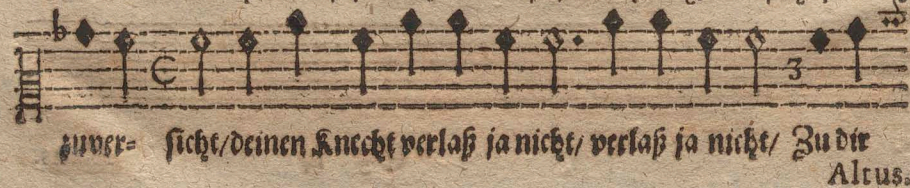 zuver= sicht/deinen Knecht verlaß ja nicht/ verlaß ja nicht/ Zu dir
Altus.